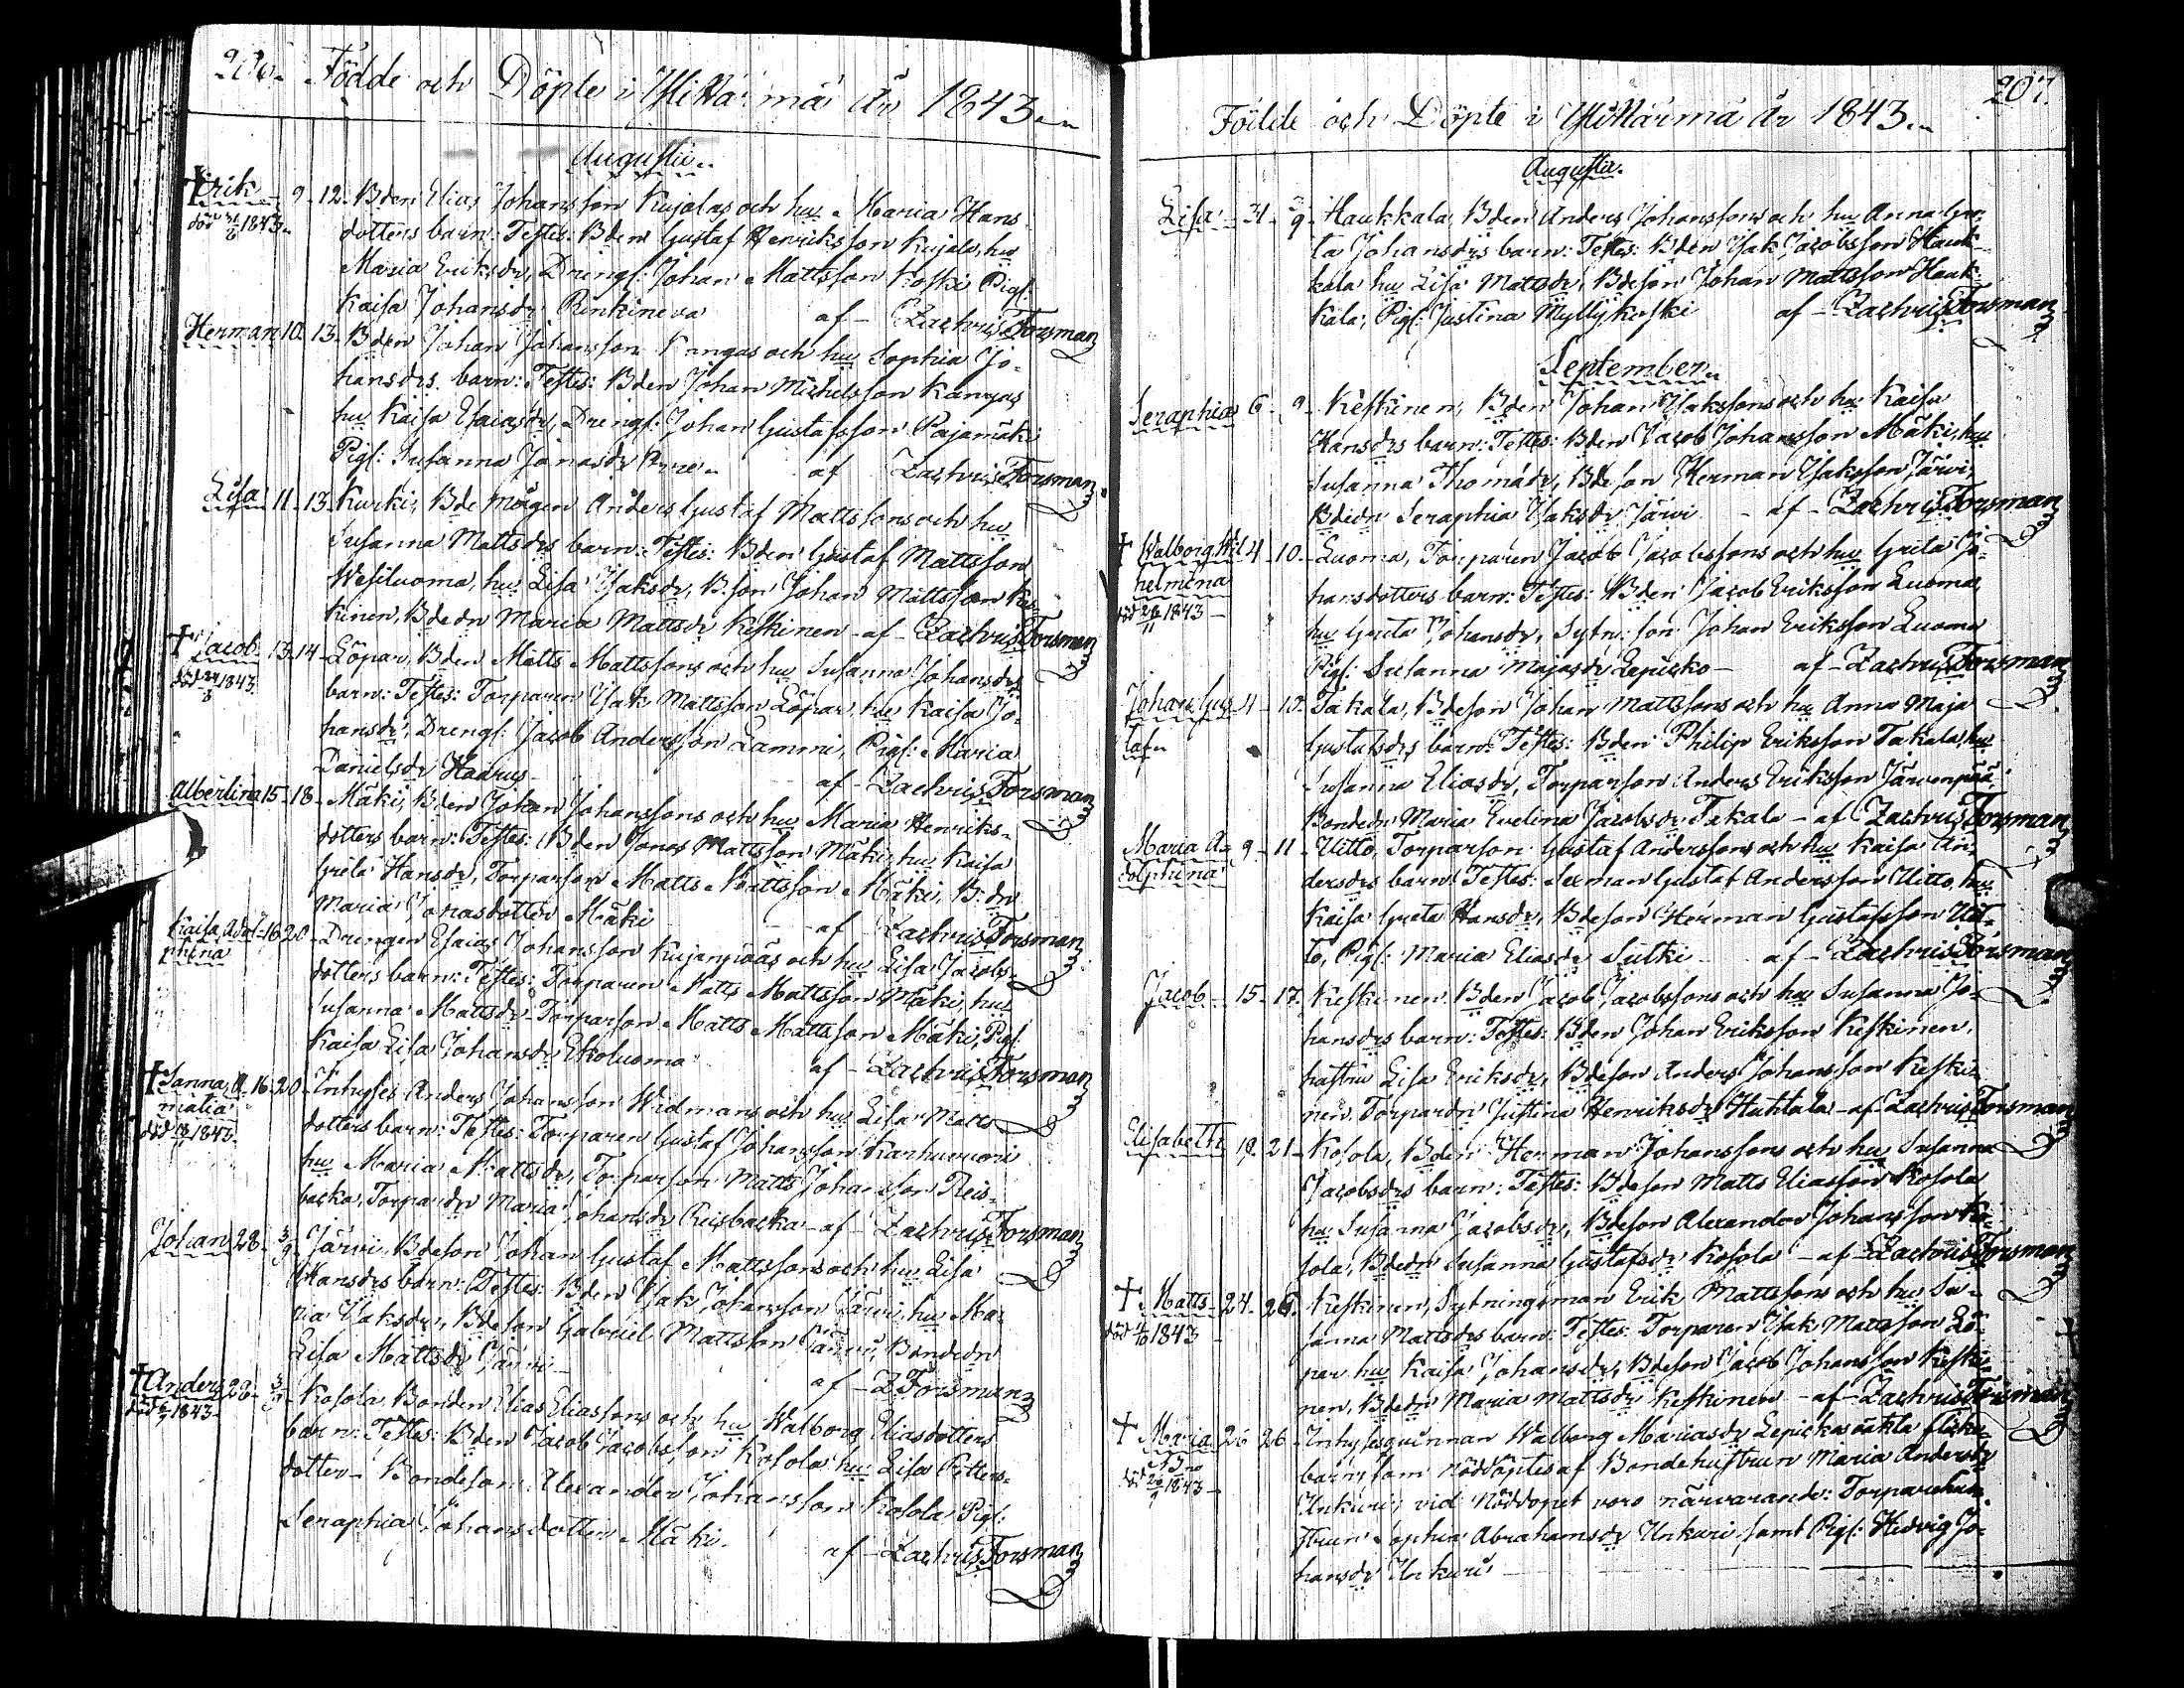 206. Födde och Döpte i Ylihärmä År 1843.
Augustii.
† Erik 9 12 Bden Elias Johansson Kujalas och hu Maria Hans
död 31/8 1843. dotters barn: Testes: Bden Gustaf Henriksson Kujala, hu
Maria Eriksdr, Drengs: Johan Mattsson Koski Pigs:
Kaisa Johansdr Renkineva af Zachris Forsman
Herman 10. 13. Bden Johan Johansson Kangas och hu Sophia Jo-
hansdrs barn: Testes: Bden Johan Michelsson Kangas
hu Kaisa Esaiasdr, Drengs: Johan Gustafsson Pajamäki
Pigs: Susanna Jonasdr af Zachris Forsman
Lisa 11 13 Kurki, Bde mågen Anders Gustaf Mattssons och hu
Susanna Mattsdrs barn: Testes: Bden Gustaf Mattsson
Wesiluoma, hu Lisa Isaksdr, B.son Johan Mattsson Kes-
kinen, Bdedr Maria Mattsdr Keskinen af Zachris Forsman
† Jacob 13 14 Löpar, Bden Matts Mattssons och hu Susanna Johansdrs
död 24/8 1843. barn: Testes: Torparen Isak Mattsson Löpar, hu Kaisa Jo-
hansdr, Drengs: Jacob Andersson Lammi, Pigs: Maria
Danielsdr Haarus af Zachris Forsman
Albertina 15 18 Mäki, Bden Johan Johanssons och hu Maria Henriks-
dotters barn: Testes: Bden Jonas Mattsson Mäki, hu Kaisa
Greta Hansdr, Torparson Matts Mattsson Mäki, B:dr
Maria Jonasdotter Mäki af Zachris Forsman
Kaisa Adol- 16 20 Drengen Esaias Johansson Kujanpääs och hu Lisa Jacobs-
phina dotters barn: Testes: Torparen Matts Mattsson Mäki, hu
Susanna Mattsdr Torparson Matts Mattsson Mäki, Pigs:
Kaisa Lisa Johansdr Ekoluoma af Zachris Forsman
† Sanna A- 16 20 Inhyses Anders Johansson Widmans och hu Lisa Matts
malia dotters barn: Testes: Torparen Gustaf Johansson Karhuvuori
död 1843. hu Maria Mattsdr, Torparson Matts Johansson Reis-
backa, Torparedr Maria Johansdr Reisbacka af Zachris Forsman
Johan 28 3/9 Järvi, Bdeson Johan Gustaf Mattssons och hu Lisa
Hansdrs barn: Testes: Bden Isak Johansson Järvi, hu Ma-
ria Isaksdr, Bdeson Gabriel Mattsson Järvi, Bondedr
Lisa Mattsdr Järvi af Z Forsman
† Anders 28 3/9 Kosola Bonden Elias Eliassons och hu Walborg Eliasdotters
död 1843. barn: Testes: Bden Jacob Jacobsson Kosola hu Lisa Petters-
dotter Bondeson Alexander Johansson Kosola, Pigs:
Seraphia Johansdotter Mäki. af Zachris Forsman
207.
Födde och Döpte i Ylihärmä År 1843.
Augustii.
Lisa 31 3/9 Haukkala, Bden Anders Johanssons och hu Anna Gre-
ta Johansdrs barn: Testes: Bden Isak Jacobsson Hauk-
kala hu Lisa Mattsdr, Bdeson Johan Mattsson Hauk-
kala, Pigs: Justina Myllykoski af Zachris Forsman
September.
Seraphia 6 9 Keskinen, Bden Johan Isakssons och hu Kaisa
Hansdrs barn: Testes: Bden Jacob Johansson Mäki, hu
Susanna Thomädr, Bdeson Herman Isaksson Järvi
Bdedr Seraphia Isaksdr Järvi af Zachris Forsman
† Walborg Wil- 4 10 Luoma, Torparen Jacob Jacobssons och hu Greta Jo-
helmina hansdotters barn: Testes: Bden Jacob Eriksson Luoma,
död 26/11 1843 hu Greta Johansdr, Sytn: son Johan Eriksson Luoma
Pigs: Susanna Majasdr Lepisko af Zachris Forsman
Johan Gus- 4 10 Takala, Bdeson Johan Mattssons och hu Anna Maja
taf Gustafsdrs barn: Testes: Bden Philip Eriksson Takala, hu
Susanna Eliasdr, Torparson Anders Eriksson Järvenpää,
Bondedr Maria Evelina Jacobsdr Takala af Zachris Forsman
Maria A- 9 11 Uitto, Torparson Gustaf Anderssons och hu Kaisa An-
dolphina dersdrs barn: Testes: Sexman Gustaf Andersson Uitto, hu
Kaisa Greta Hansdr, Bdeson Herman Gustafsson Uit-
to, Pigs: Maria Eliasdr Sulki af Zachris Forsman
Jacob 15 17 Keskinen Bden Jacob Jacobssons och hu Susanna Jo-
hansdrs barn: Testes: Bden Johan Eriksson Keskinen,
hustru Lisa Eriksdr, Bdeson Anders Johansson Keski-
nen, Torparedr Justina Henriksdr Huhtala af Zachris Forsman
Elisabeth 19 21 Kosola, Bden Herman Johanssons och hu Susanna
Jacobsdrs barn: Testes: Bdeson Matts Eliasson Kosola
hu Susanna Jacobsdr, Bdeson Alexander Johansson Ko-
sola, Bdedr Susanna Gustafsdr Kosola af Zachris Forsman
† Matts 24 26 Keskinen, Sytningsman Erik Mattssons och hu Su-
död 1/10 1843 sanna Mattsdrs barn: Testes: Torparen Isak Mattsson Lö-
par hu Kaisa Johansdr, Bdeson Jacob Johansson Keski-
nen, Bdedr Maria Mattsdr Keskinen af Zachris Forsman
† Maria 26 26 Inhysesqvinnan Walborg Mariasdr Lepickos oäkta flicke
NB
död 26/9 1843 barn som nöddöptes af Bondehustrun Maria Andersdr
Unkuri; vid Nöddopet voro närvarande: Torparehu-
strun Sophia Abrahamsdr Unkuri samt Pigs: Hedvig Jo-
hansdr Unkuri